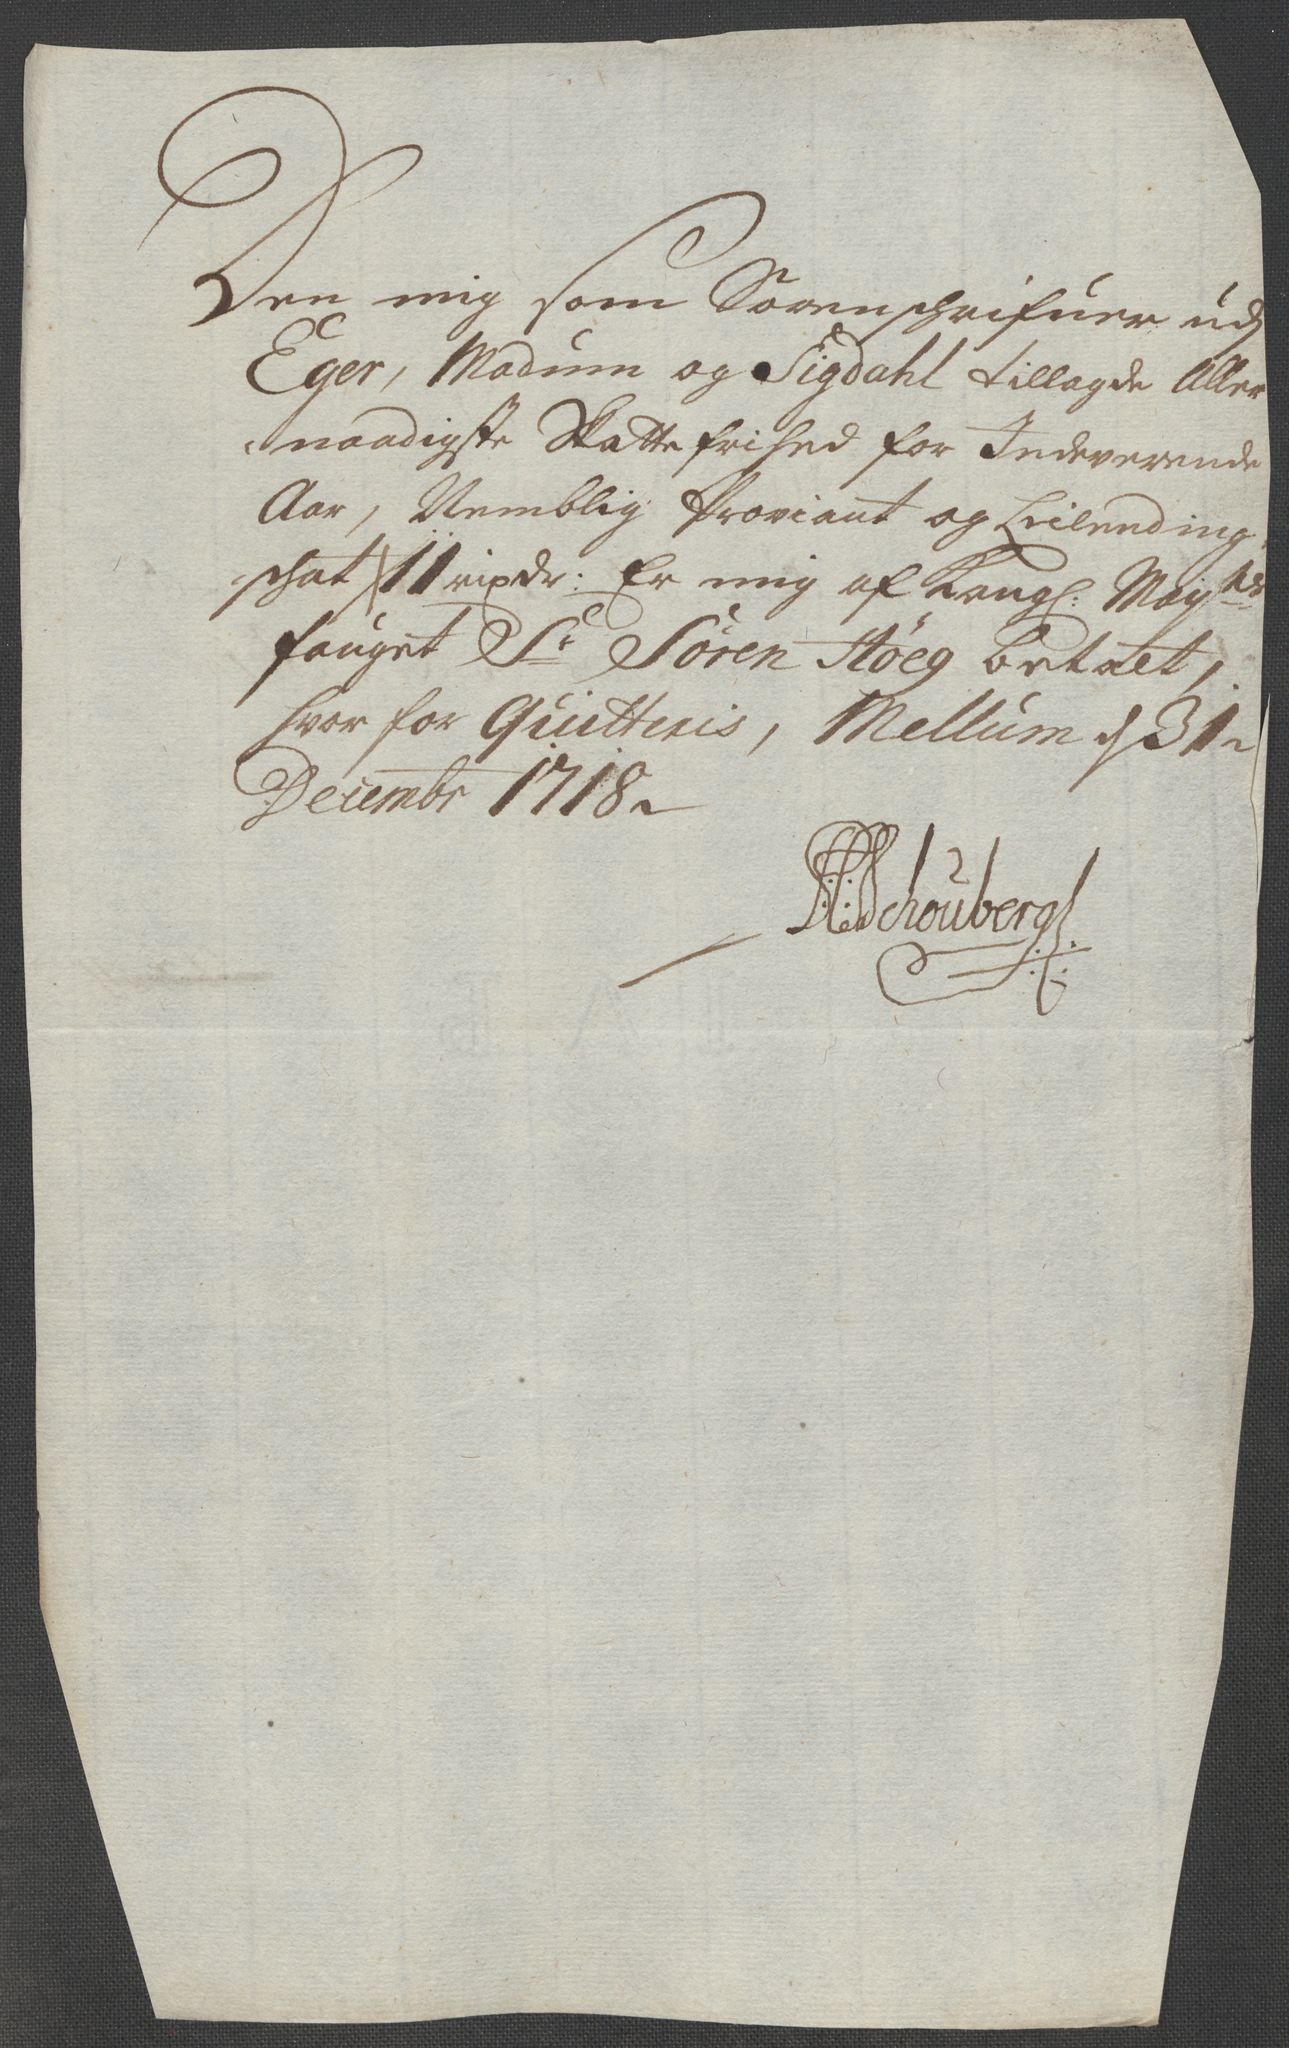 Den mig som Sorenschrifuer udj
Eger, Modum og Sigdahl tillagde Aller
naadigste Skatte frihed for Indeverende
Aar, Nemblig Proviant og Leilending
schat 11 rixdr: Er mig af Kongl: Mayts
fouget Sr Sören Höeg betalt,
hvor for Quitteris, Mellum d 31
Decembr 1718
Schouberg